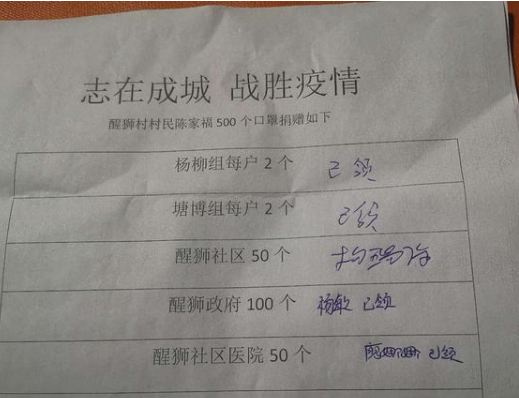 志在成城 战胜疫情
醒狮村村民陈家福500个口罩捐赠如下
杨柳组每户2个 已领
塘博组每户2个 已领
醒狮社区50个
醒狮政府100个 杨敏 已领
醒狮社区医院50个 娜娜 已领